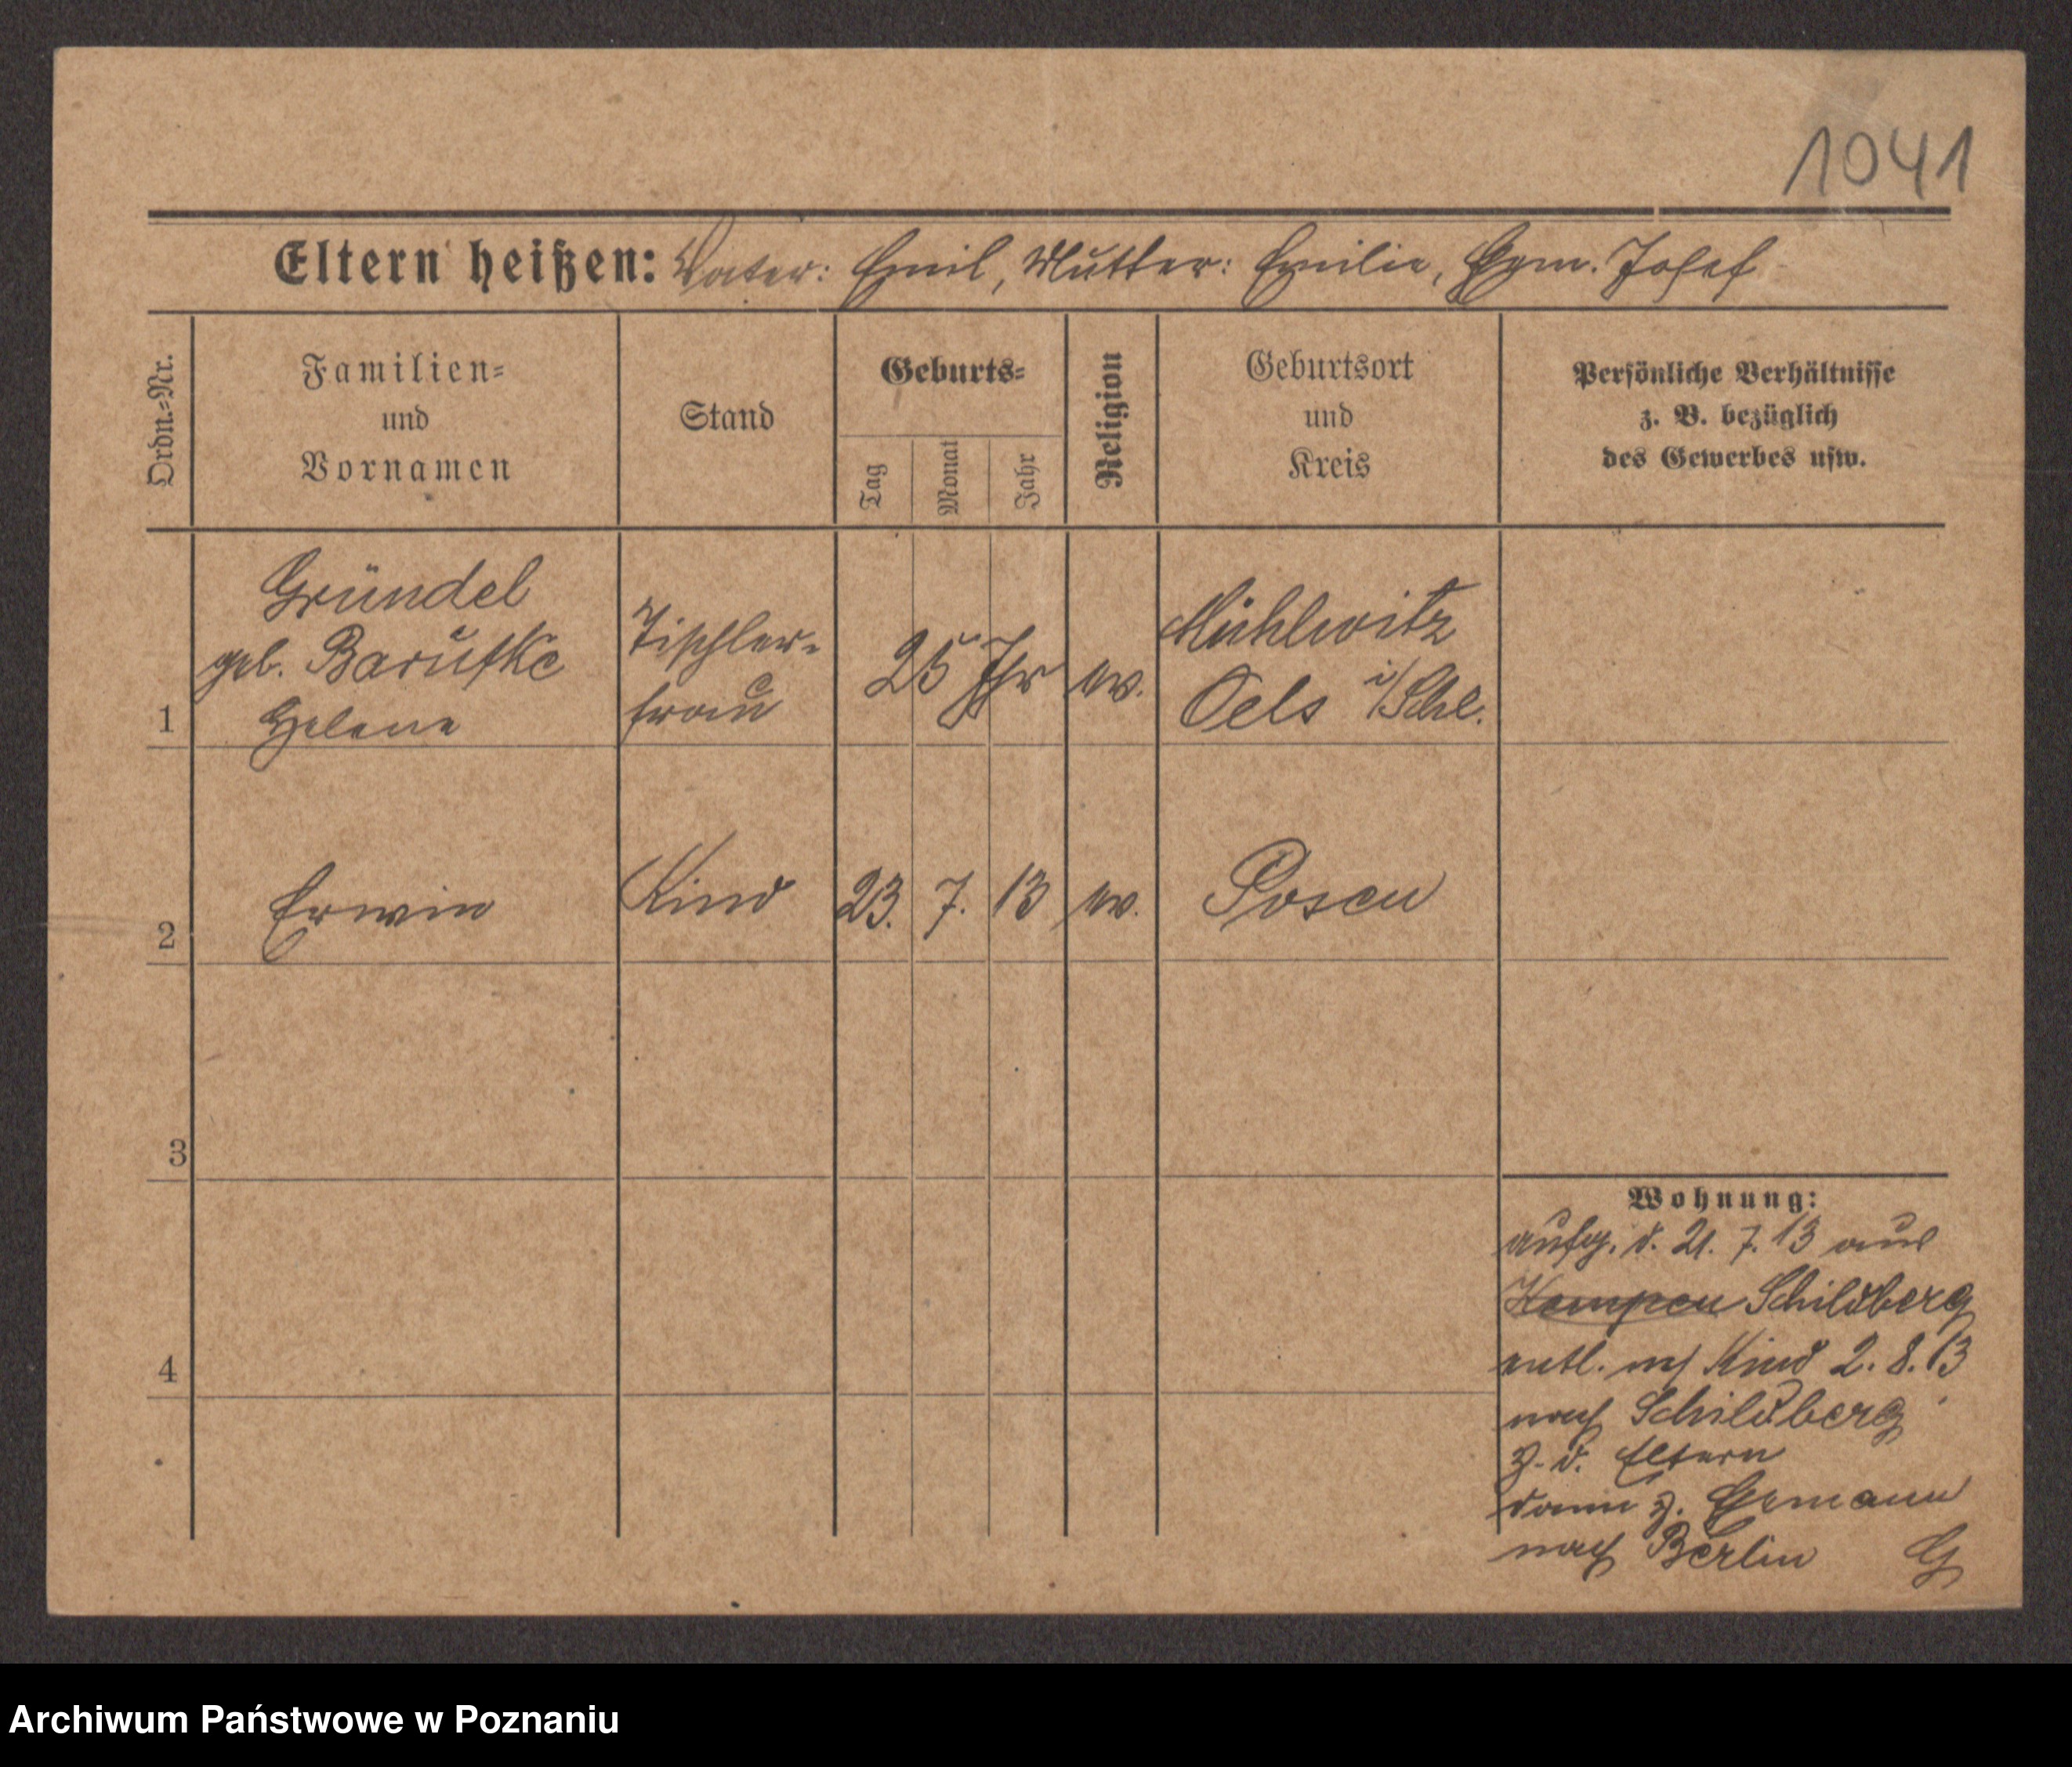 1041
Eltern heißen: Vater: Emil, Mutter: Emilie, Ehm. Josef
Ordn.=Nr.
Familien=
und
Vornamen
Stand
Geburts=
Tag
Monat
Jahr
Religion
Geburtsort
und
Kreis
Persönliche Verhältnisse
z. B. bezüglich
des Gewerbes usw.
1
Gründel
geb. Barutke
Helene
Tischler-
frau
25 Jhr
ev.
Mühlwitz
Oels i/Schl.
2
Erwin
Kind
23. 7. 13
ev.
Posen
3
4
Wohnung:
aufg. d. 21. 7. 13 aus
Kempen Schildberg
entl. m/ Kind 2. 8. 13
nach Schildberg
z. d. Eltern
dann z. Ehemann
nach Berlin G
Archiwum Państwowe w Poznaniu